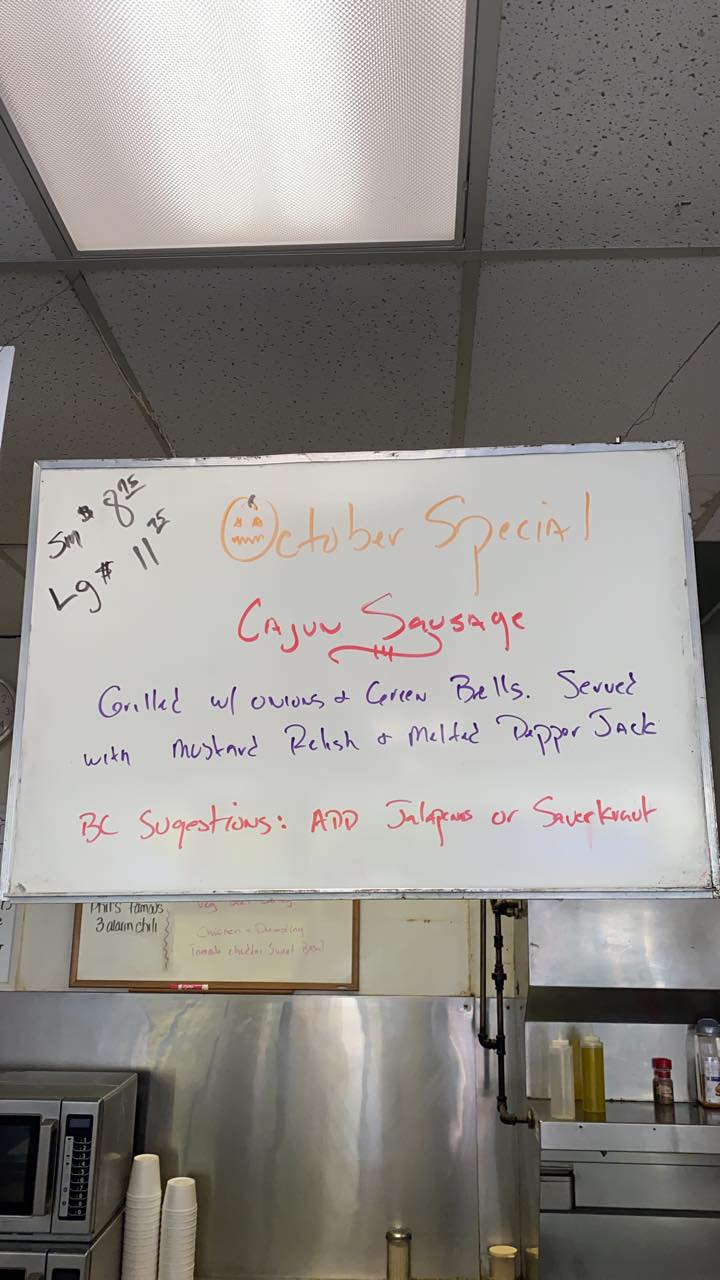 Sm $ 8 75
Lg $ 11 25
October Special
Cajun Sausage
Grilled w/ onions & Green Bells. Served
with mustard Relish & Melted Pepper Jack
BC Sugestions: ADD Jalapenos or Sauerkraut
Phil's Famous
3 alarm chili
Chicken & Dumpling
tomato cheddar